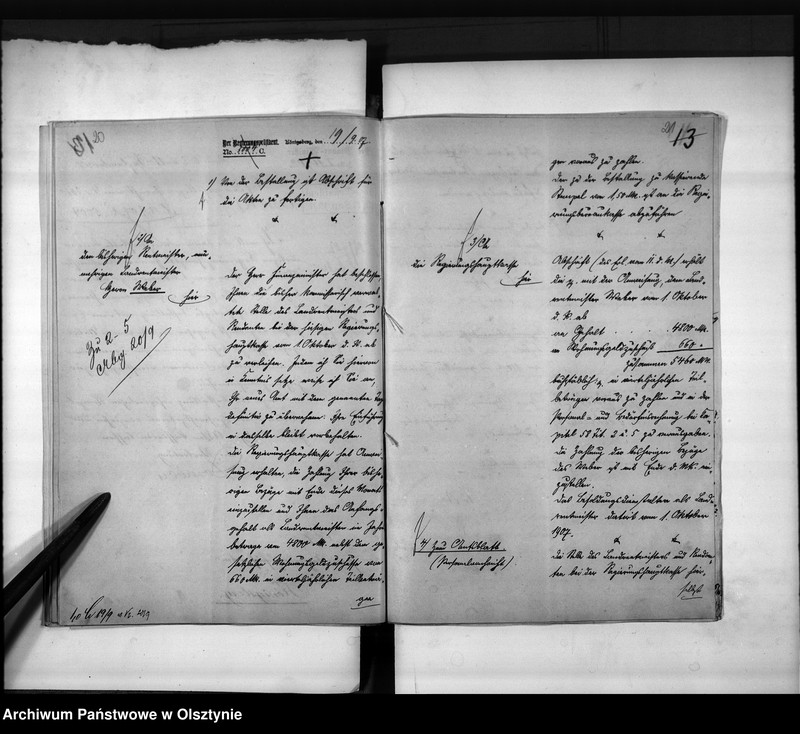 20
13
Der Regierungspräsident. Königsberg, den 19/9. 07.
No. C.
1) Von der Bestallung ist Abschrift für
die Akten zu fertigen.
2/ An
den bisherigen Rentmeister, nun-
mehrigen Landrentmeister
Herrn Weber
hier
Zu 2-5
20/9
Der Herr Finanzminister hat beschlossen,
Ihnen die bisher kommissarisch verwal-
tete Stelle des Landrentmeisters und
Rendanten bei der hiesigen Regierungs-
hauptkasse vom 1. Oktober d. Js. ab
zu verleihen. Indem ich Sie hiervon
in Kenntnis setze, weise ich Sie an,
Ihr neues Amt mit dem genannten Tage
definitiv zu übernehmen. Ihre Einführung
in dasselbe bleibt vorbehalten.
Die Regierungshauptkasse hat Anwei-
sung erhalten, die Zahlung Ihrer bishe-
rigen Bezüge mit Ende dieses Monats
einzustellen und Ihnen das Anfangs-
gehalt als Landrentmeister im Jahres-
betrage von 4800 M. nebst dem ge-
setzlichen Wohnungsgeldzuschuß von
660 M. in vierteljährlichen Teilbeträ-
gen
19/9
20
13
gen voraus zu zahlen.
Der zu der Bestallung zu kassierende
Stempel von 1,50 M. ist an die Regie-
rungshauptkasse abzuführen
3/ An
die Regierungshauptkasse
hier
Abschrift (des Erl. vom 11. d. Mts.) erhält
die p. mit der Anweisung, dem Land-
rentmeister Weber vom 1. Oktober
d. Js. ab
an Gehalt . . . . 4800 M.
" Wohnungsgeldzuschuß 660 "
zusammen 5460 M.
in vierteljährlichen Teil-
beträgen voraus zu zahlen und in der
Personal- und Bedürfnisrechnung bei Ka-
pitel 58 Tit. 2 u. 5 zu verausgaben.
Die Zahlung der bisherigen Bezüge
des Weber ist mit Ende d. Mts. ein-
zustellen.
Das Besoldungsdienstalter als Land-
rentmeister datiert vom 1. Oktober
1907.
4) Zum Amtsblatt
(Personalnachricht)
Die Stelle des Landrentmeisters und Rendan-
ten bei der Regierungshauptkasse hier-
selbst
Archiwum Państwowe w Olsztynie